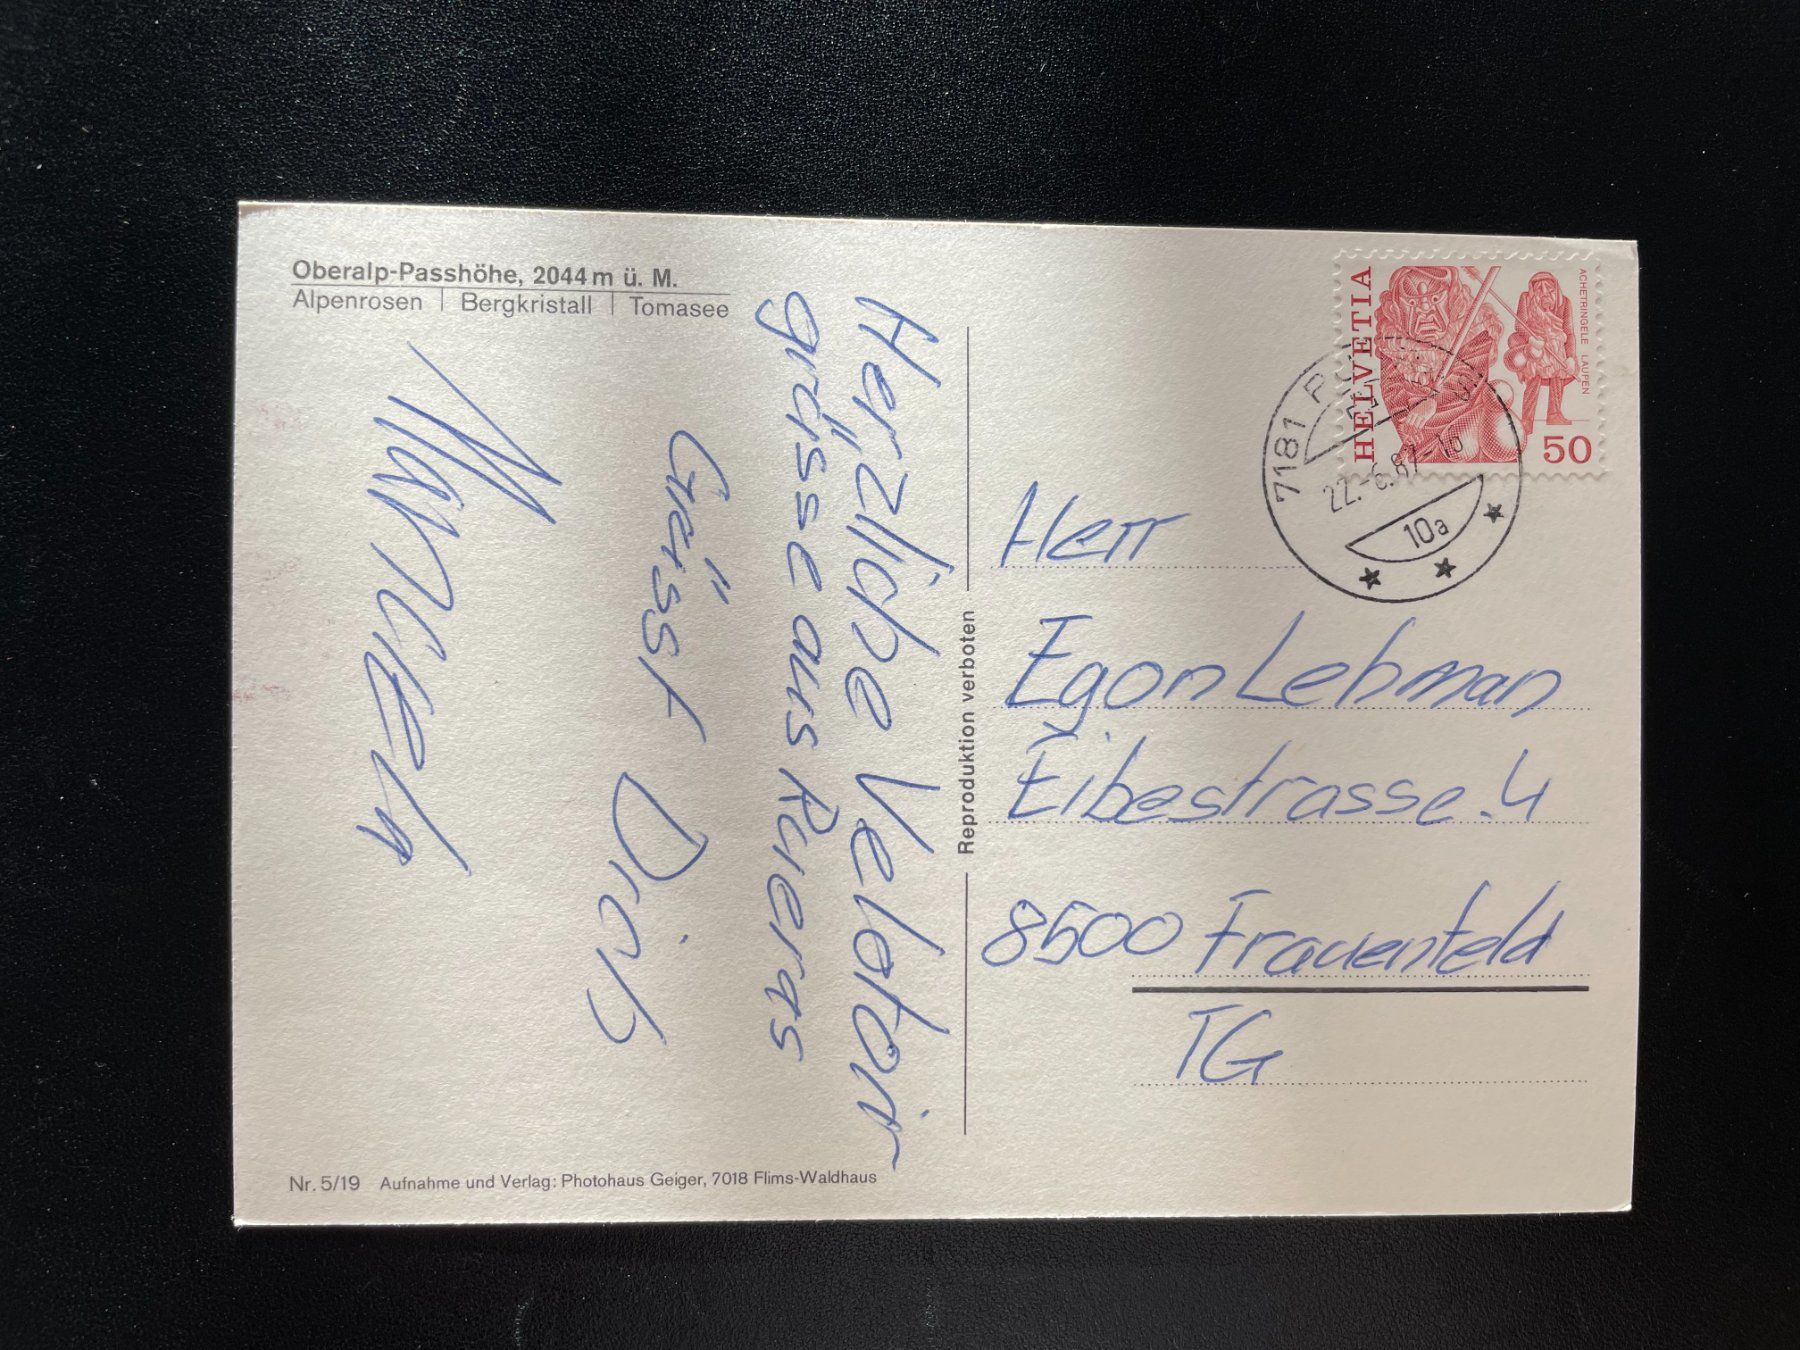 Oberalp-Passhöhe, 2044 m ü. M.
Alpenrosen | Bergkristall | Tomasee
Herzliche
grüsse aus Rueras
Grüsst Dich
Manuela
Nr. 5/19 Aufnahme und Verlag: Photohaus Geiger, 7018 Flims-Waldhaus
Reproduktion verboten
HELVETIA
ACHETRINGELE LAUPEN
50
7181
22.-6.87-18
10a
Herr
Egon Lehman
Eibestrasse. 4
8500 Frauenfeld
TG